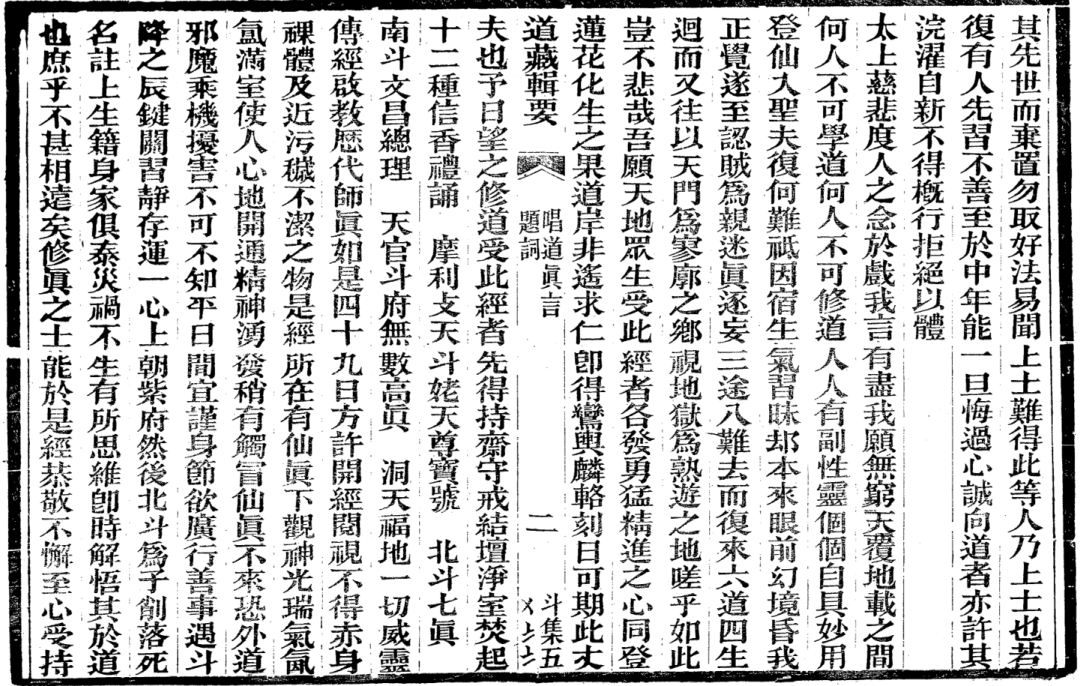 其先世而棄置勿取好法易聞上士難得此等人乃上士也若
復有人先習不善至於中年能一旦悔過心誠向道者亦許其
浣濯自新不得概行拒絕以體
太上慈悲度人之念於戲我言有盡我願無窮天覆地載之間
何人不可學道何人不可修道人人有副性靈個個自具妙用
登仙入聖夫復何難祇因宿生氣習昧却本來眼前幻境昏我
正覺遂至認賊爲親迷眞逐妄三途八難去而復來六道四生
迴而又往以天門爲寥廓之鄉視地獄爲熟遊之地嗟乎如此
豈不悲哉吾願天地眾生受此經者各發勇猛精進之心同登
蓮花化生之果道岸非遙求仁卽得鸞輿麟輅刻日可期此丈
道藏輯要 唱道眞言 題詞 二 斗集五
夫也予日望之修道受此經者先得持齋守戒結壇淨室焚起
十二種信香禮誦 摩利支天斗姥天尊寶號 北斗七眞
南斗文昌總理 天官斗府無數高眞 洞天福地一切威靈
傳經啟教歷代師眞如是四十九日方許開經閱視不得赤身
裸體及近污穢不潔之物是經所在有仙眞下觀神光瑞氣氤
氳滿室使人心地開通精神湧發稍有觸冒仙眞不來恐外道
邪魔乘機擾害不可不知平日間宜謹身節欲廣行善事遇斗
降之辰鍵關習靜存運一心上朝紫府然後北斗爲子削落死
名註上生籍身家俱泰災禍不生有所思維卽時解悟其於道
也庶乎不甚相遠矣修眞之士能於是經恭敬不懈至心受持